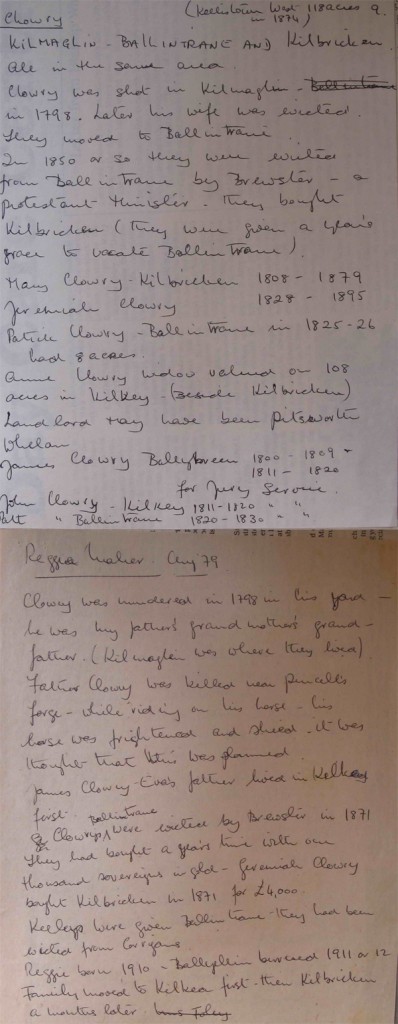 Clowry (Kellistown West 118 acres
in 1874)
KILMAGLIN - BALLINTRANE AND Kilbricken
are in the same area
Clowry was shot in Kilmaglin - Ballintrane
in 1798. Later his wife was evicted.
They moved to Ballintrane.
In 1850 or so they were evicted
from Ballintrane by Brewster - a
protestant Minister. They bought
Kilbricken (They were given a year's
grace to vacate Ballintrane).
Mary Clowry - Kilbricken 1808 - 1879
Jeremiah Clowry 1828 - 1895
Patrick Clowry - Ballintrane in 1825-26
had 8 acres.
Anne Clowry widow valued on 108
acres in Kilkey - (beside Kilbricken)
Landlord may have been Pitsworth
Whelan
James Clowry Ballybreen 1800 - 1809
1811 - 1820
for Jury Service.
John Clowry - Kilkey 1811-1820 " "
Patt " Ballintrane 1820-1830 " "
Reggie Maher. Aug 79
Clowry was murdered in 1798 in his yard -
he was my father's grandmother's grand-
father. (Kilmaglin was where they lived)
Father Clowry was killed near Purcells
forge - while riding on his horse - his
horse was frightened and shied. It was
thought that this was planned.
James Clowry - Eva's father lived in Kilkea
first.
Clowrys Ballintrane were evicted by Brewster in 1871
They had bought a years time with one
thousand sovereigns in gold - Jeremiah Clowry
bought Kilbricken in 1871 for £4,000.
Keeleys were given Ballintrane - they had been
evicted from Grogans.
Reggie born 1910 - burned 1911 or 12
Family moved to Kilkea first - then Kilbricken
a months later.